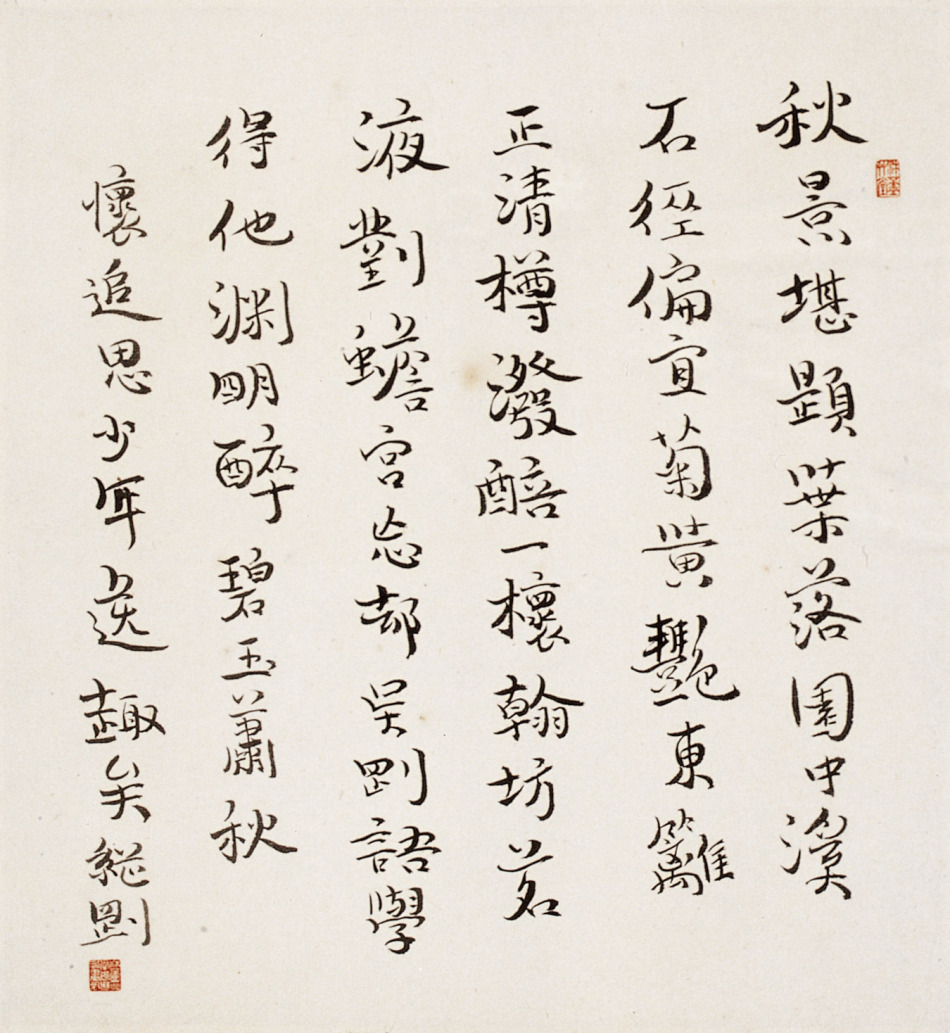 秋景堪題葉落園中溪
石徑偏宜菊黃艷東籬
正清樽潑醅一櫰翰坊茗
液劉蟾宮忘却吴剛語學
得他淵明醉碧玉蕭秋
懷追思少年逸趣矣繼剛